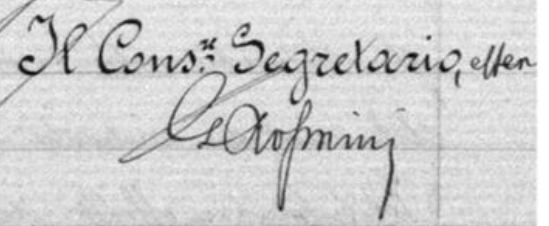 Il Cons.re Segretario, effen
G Rosmini